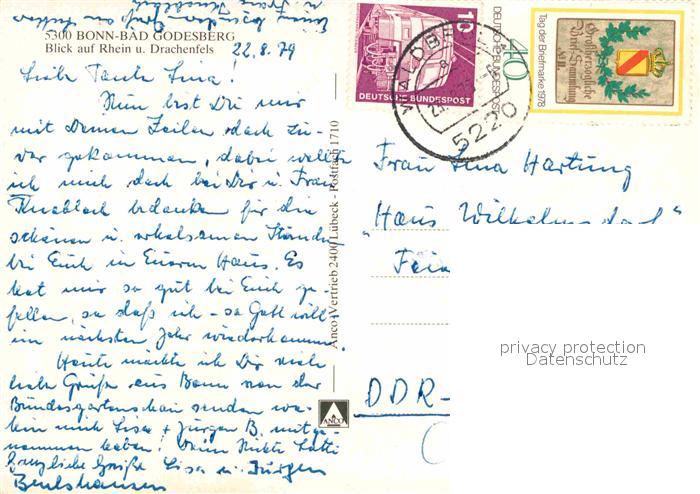 5300 BONN-BAD GODESBERG
Blick auf Rhein u. Drachenfels
22.8.79
Liebe Tante Lina!
Nun bist Du mir
mit Deinen Zeilen doch zu-
vor gekommen, dabei wollte
ich mich doch bei Dir u. Frau
Knobloch bedanken für die
schönen u. erholsamen Stunden
bei Euch in Eurem Haus. Es
hat mir so gut bei Euch ge-
fallen, so daß ich - so Gott will
im nächsten Jahr wiederkomme.
Heute möchte ich Dir viele
liebe Grüße aus Bonn von der
Bundesgartenschau senden wo-
hin mich Lisa + Jürgen B. mitge-
nommen haben! Deine Nichte Lotti
Herzliche Grüße Lisa u. Jürgen
Anco-Vertrieb 2400 Lübeck - Postfach 1710
ANCO
10
DEUTSCHE BUNDESPOST
40
DEUTSCHE BUNDESPOST
Tag der Briefmarke 1978
Großherzogliche
Brief-Sammlung
WALDBRÖL
5220
Frau Lina Hartung
"Haus Wilhelms
DDR-
privacy protection
Datenschutz